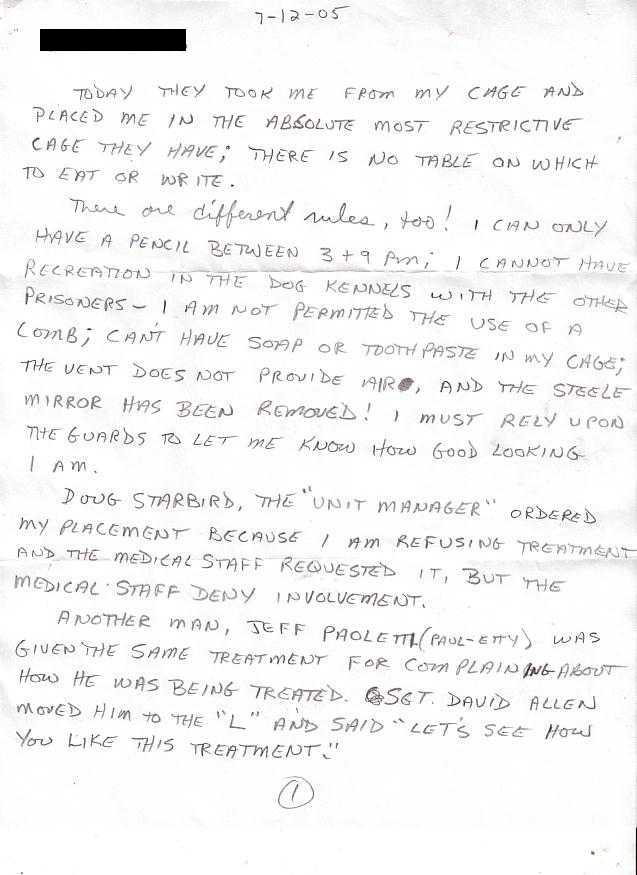 7-12-05
TODAY THEY TOOK ME FROM MY CAGE AND
PLACED ME IN THE ABSOLUTE MOST RESTRICTIVE
CAGE THEY HAVE; THERE IS NO TABLE ON WHICH
TO EAT OR WRITE.
There are different rules, too! I CAN ONLY
HAVE A PENCIL BETWEEN 3+9 Pm; I CANNOT HAVE
RECREATION IN THE DOG KENNELS WITH THE OTHER
PRISONERS- I AM NOT PERMITTED THE USE OF A
COMB; CAN'T HAVE SOAP OR TOOTHPASTE IN MY CAGE;
THE VENT DOES NOT PROVIDE AIR, AND THE STEELE
MIRROR HAS BEEN REMOVED! I MUST RELY UPON
THE GUARDS TO LET ME KNOW HOW GOOD LOOKING
I AM.
DOUG STARBIRD, THE "UNIT MANAGER" ORDERED
MY PLACEMENT BECAUSE I AM REFUSING TREATMENT
AND THE MEDICAL STAFF REQUESTED IT, BUT THE
MEDICAL STAFF DENY INVOLVEMENT.
ANOTHER MAN, JEFF PAOLETTI (PAUL-ETTY) WAS
GIVEN THE SAME TREATMENT FOR COMPLAINING ABOUT
HOW HE WAS BEING TREATED. SGT. DAVID ALLEN
MOVED HIM TO THE "L" AND SAID "LET'S SEE HOW
YOU LIKE THIS TREATMENT."
1